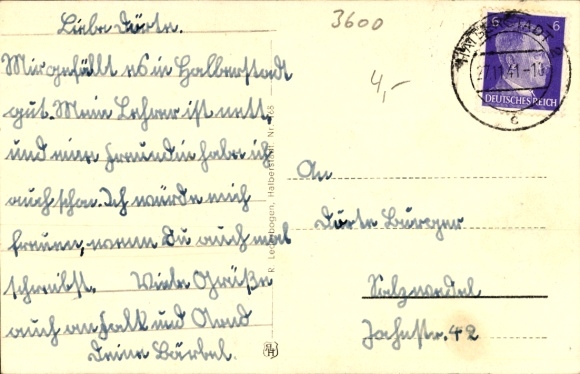 Liebe Dörte.
Mir gefällt es in Halberstadt
gut. Mein Lehrer ist nett,
und eine Freundin habe ich
auch schon. Ich würde mich
freuen, wenn Du auch mal
schreibst. Viele Grüße
auch an Falk und
Deine Bärbel.
3600
4,-
6 6
27.11.41-1
DEUTSCHES REICH
R. Lederbogen, Halberstadt, Nr.
An
Dörte Burger
Salzwedel
Jahnstr. 42